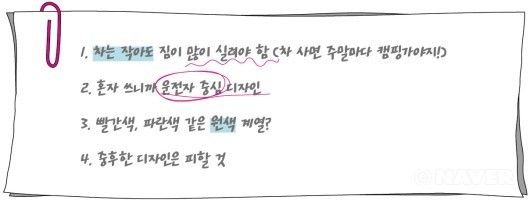 1. 차는 작아도 짐이 많이 실려야 함 (차 사면 주말마다 캠핑가야지!)
2. 혼자 쓰니까 운전자 중심 디자인
3. 빨간색, 파란색 같은 원색 계열?
4. 중후한 디자인은 피할 것
© NAVER